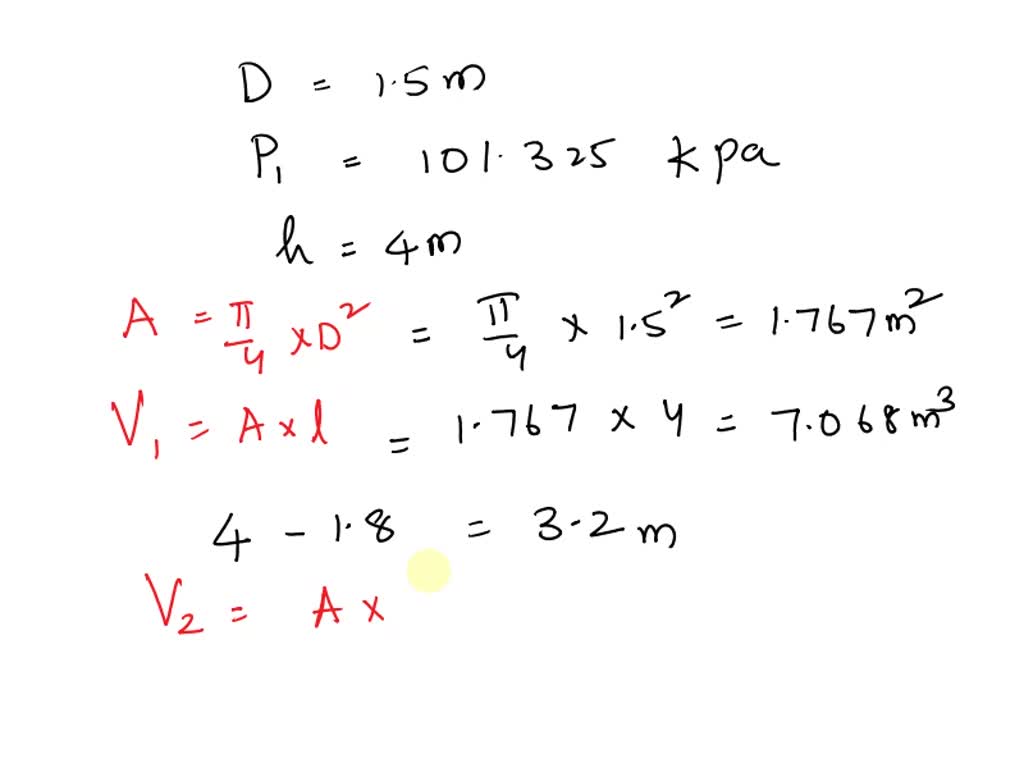 D = 1.5 m
P₁ = 101.325 kpa
h = 4 m
A = π/4 × D² = π/4 × 1.5² = 1.767 m²
V₁ = A × l = 1.767 × 4 = 7.068 m³
4 - 1.8 = 3.2 m
V₂ = A ×